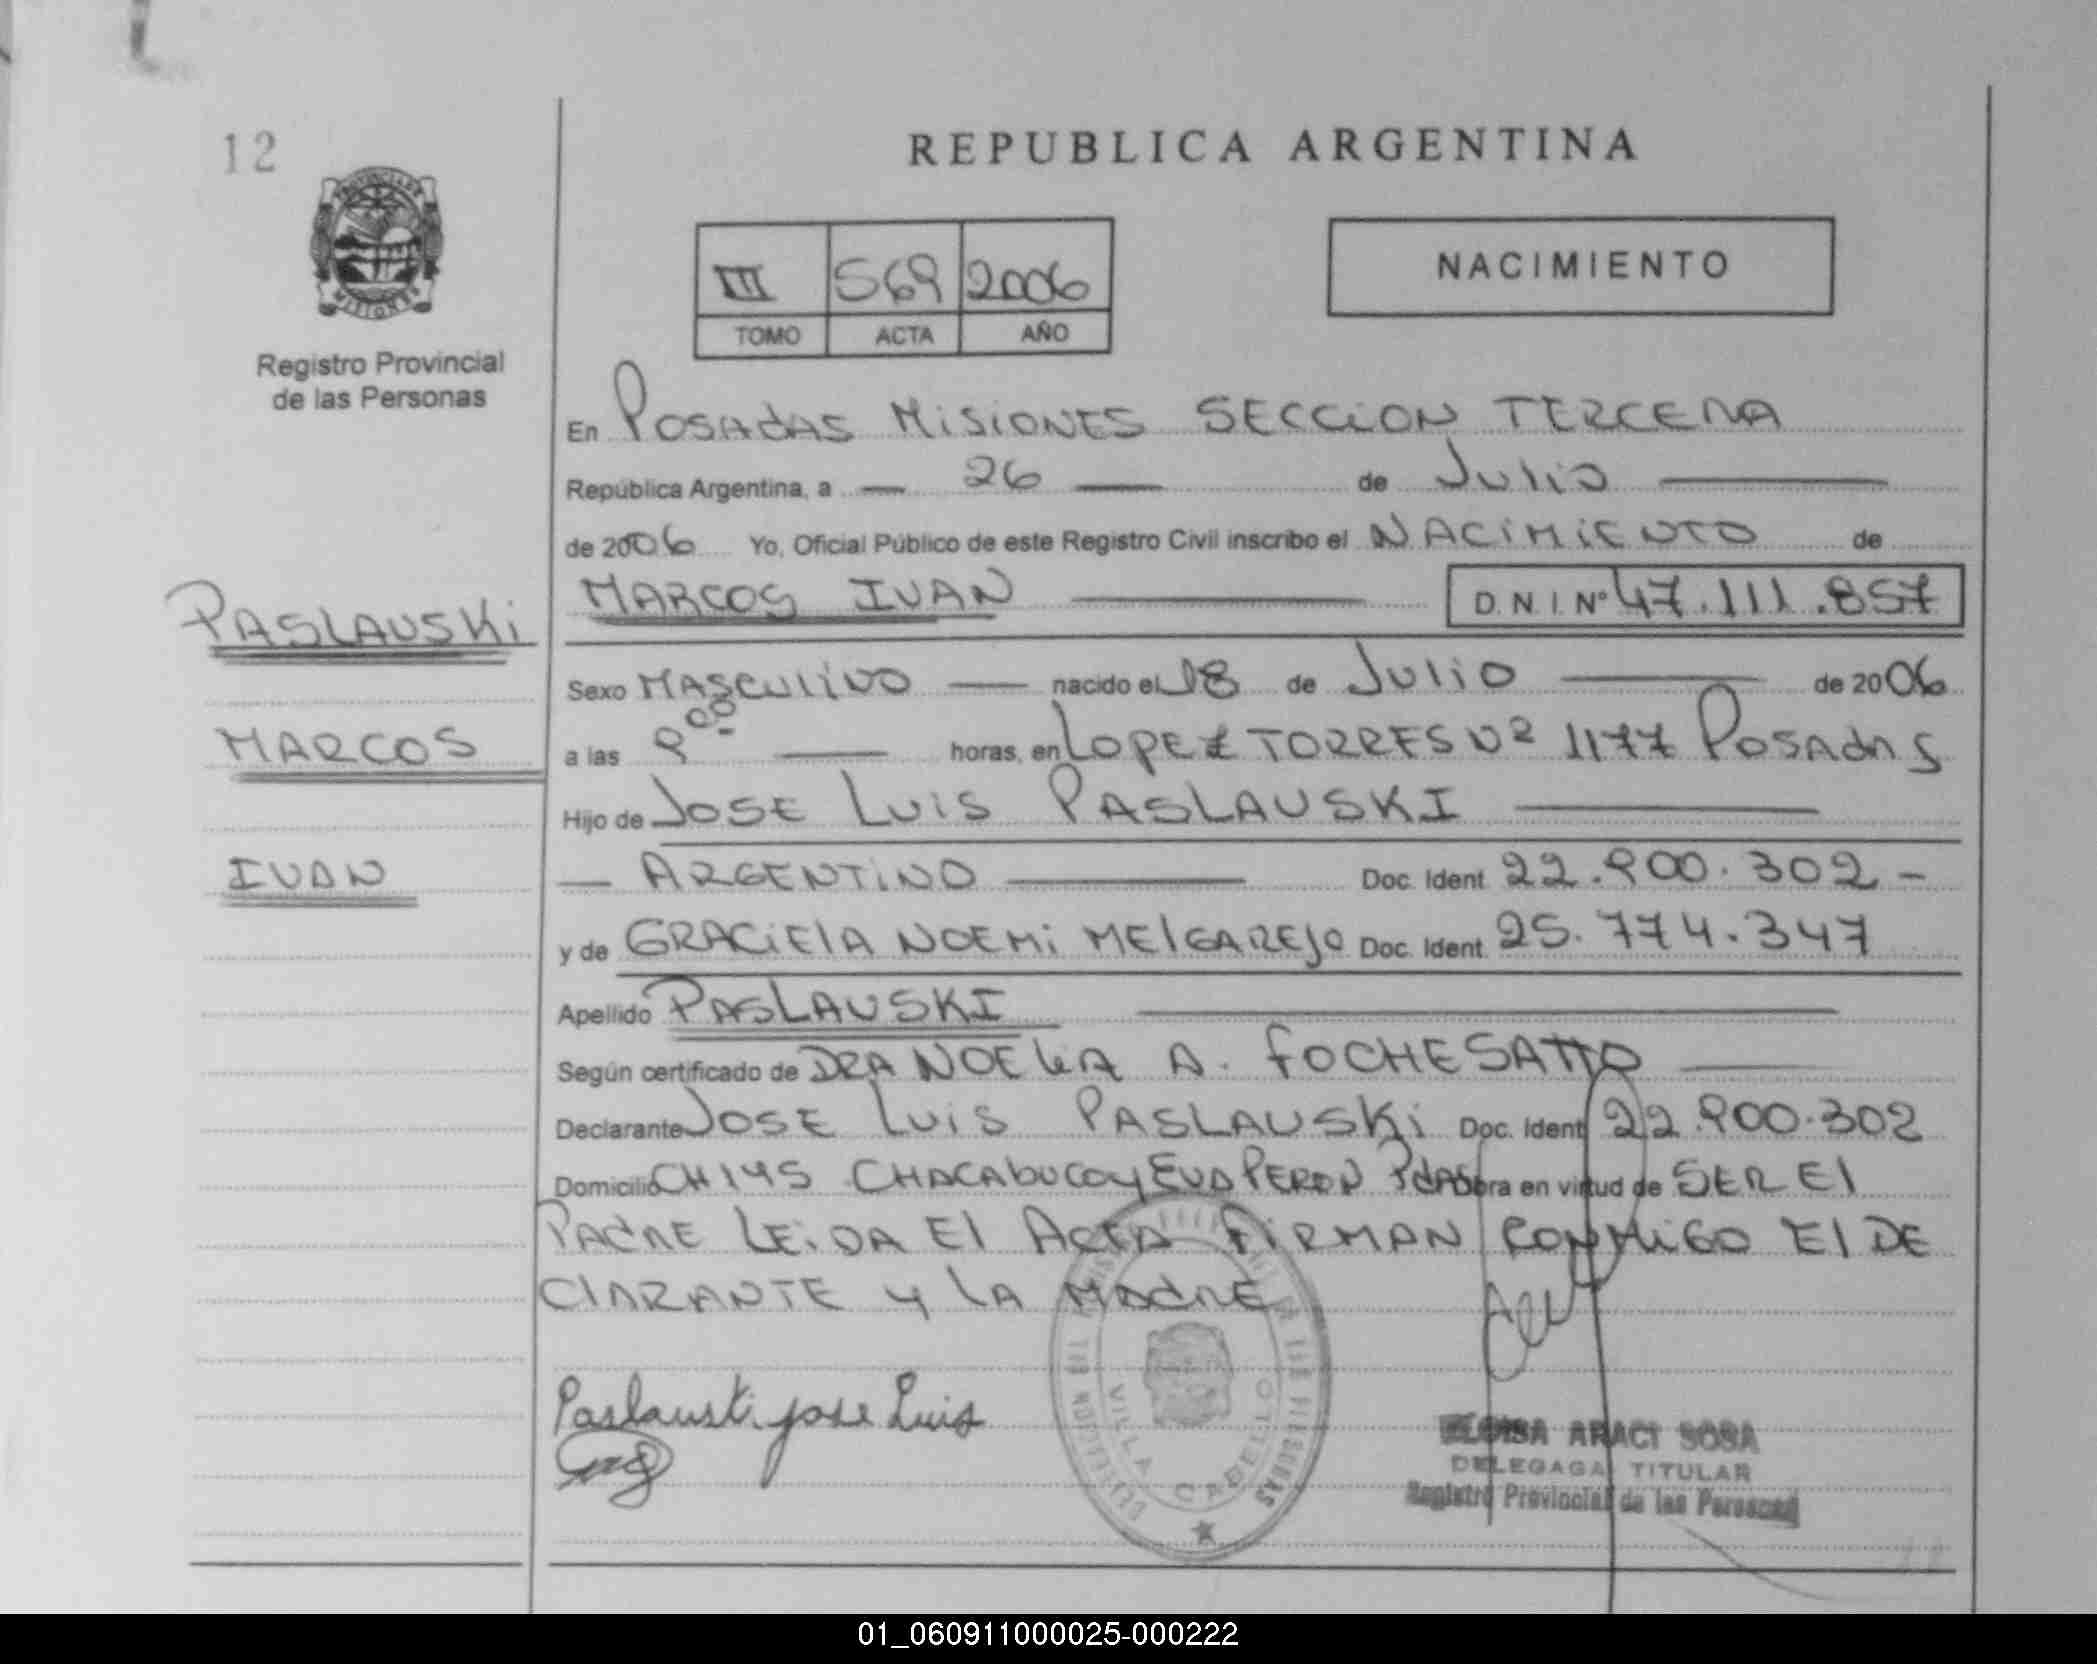 12
REPUBLICA ARGENTINA
III 569 2006
TOMO ACTA AÑO
NACIMIENTO
PROVINCIA DE
MISIONES
Registro Provincial
de las Personas
En POSAdAS MISIONES SECCION TERCERA
República Argentina, a — 26 — de Julio —
de 2006 Yo, Oficial Público de este Registro Civil inscribo el NACIMIENTO de
MARCOS IVAN — D.N.I. Nº 47.111.857
PASLAUSKi
MARCOS
IVAN
Sexo MASCULINO — nacido el 18 de Julio — de 2006
a las 9 00 — horas, en LOPEZ TORRES Nº 1177 POSAdAS
Hijo de JOSE LUIS PASLAUSKI —
— ARGENTINO — Doc. Ident. 22.900.302 -
y de GRACIElA NOEMi MElGAREJO Doc. Ident. 25.774.347
Apellido PASLAUSKI —
Según certificado de DRA NOELIA A. FOCHESATTO —
Declarante JOSE LUIS PASLAUSKi Doc. Ident 22.900.302
Domicilio CH 145 CHACAbUCO y EVA PERON PdAS obra en virtud de SER El
PAdRE LEIDA El ACTA FIRMAN CONMIGO El DE
ClARANTE y LA MAdRE
Paslauski jose Luis
VILLA CABELLO
ELOISA ARACI SOSA
DELEGADA TITULAR
Registro Provincial de las Personas
01_060911000025-000222